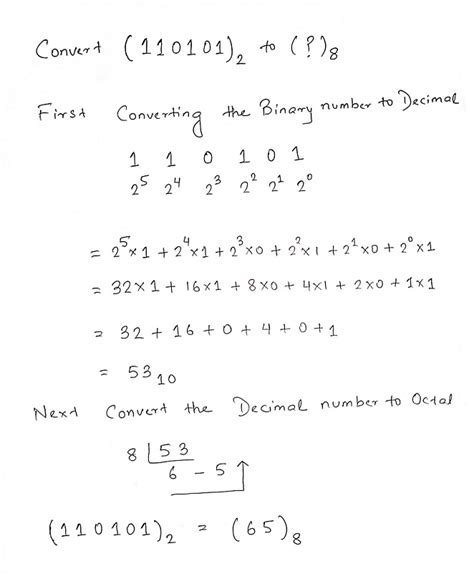 Convert (110101)₂ to (?)₈
First Converting the Binary number to Decimal
1 1 0 1 0 1
2⁵ 2⁴ 2³ 2² 2¹ 2⁰
= 2⁵×1 + 2⁴×1 + 2³×0 + 2²×1 + 2¹×0 + 2⁰×1
= 32×1 + 16×1 + 8×0 + 4×1 + 2×0 + 1×1
= 32 + 16 + 0 + 4 + 0 + 1
= 53₁₀
Next Convert the Decimal number to Octal
8 | 53
6 - 5
(110101)₂ = (65)₈